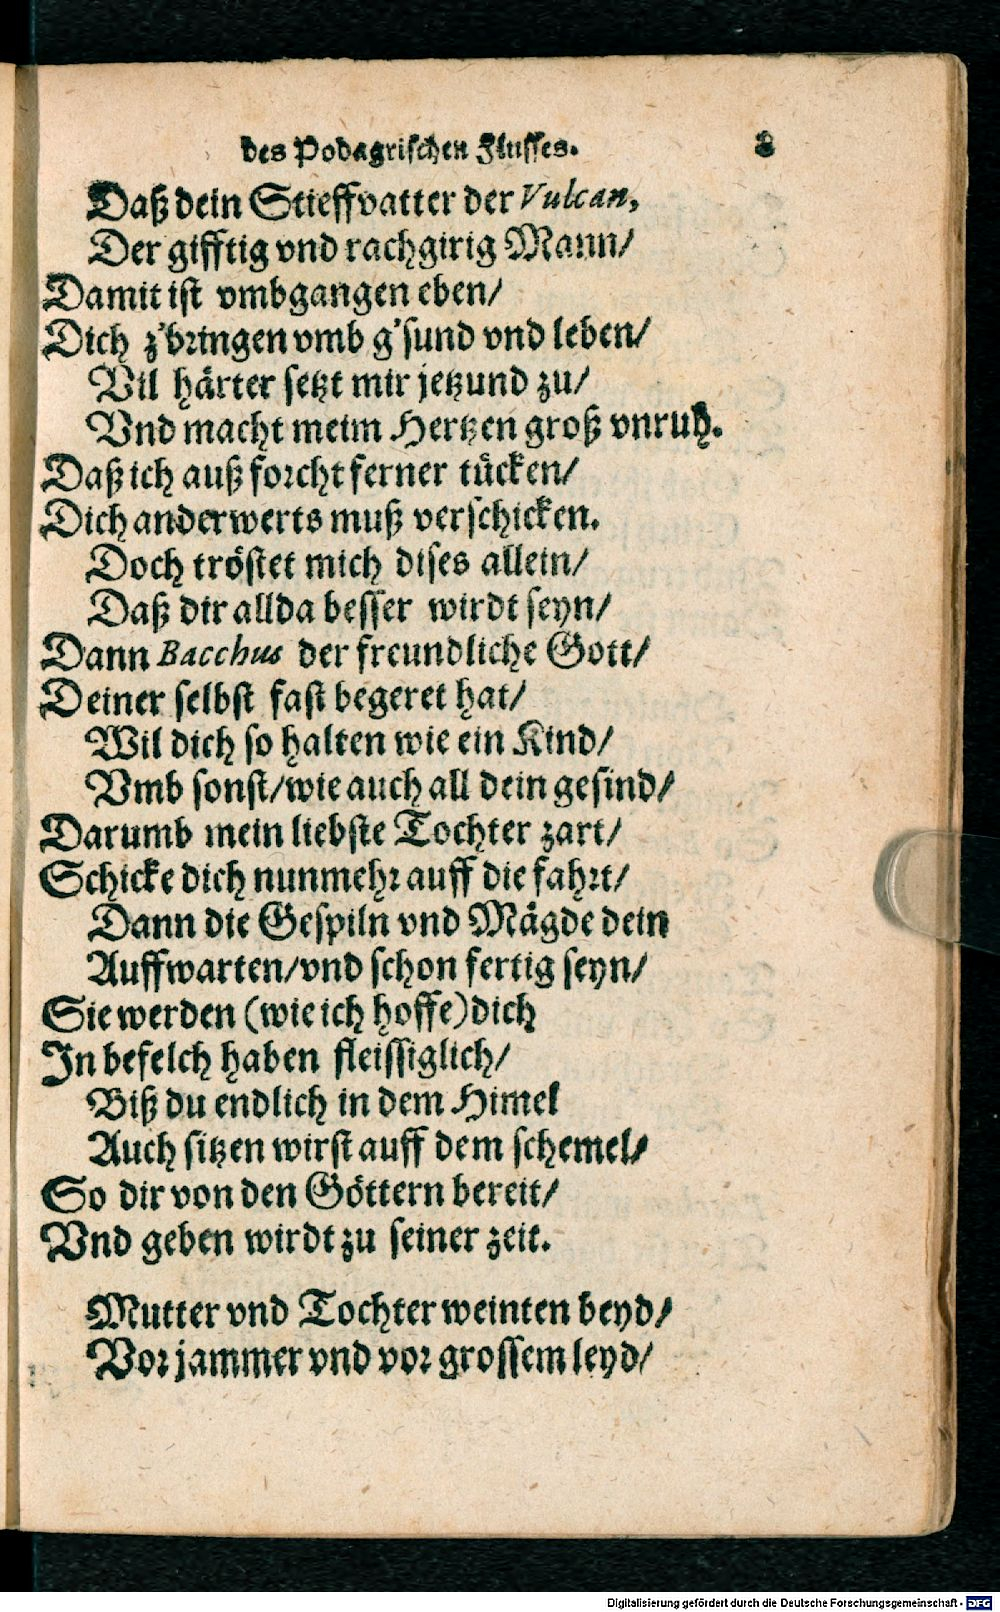 des Podagrischen Flusses. 8
Daß dein Stieffvatter der Vulcan,
Der gifftig vnd rachgirig Mann/
Damit ist vmbgangen eben/
Dich z'bringen vmb g'sund vnd leben/
Vil härter setzt mir jetzund zu/
Vnd macht meim Hertzen groß vnruh.
Daß ich auß forcht ferner tücken/
Dich anderwerts muß verschicken.
Doch tröstet mich dises allein/
Daß dir allda besser wirdt seyn/
Dann Bacchus der freundliche Gott/
Deiner selbst fast begeret hat/
Wil dich so halten wie ein Kind/
Vmb sonst/wie auch all dein gesind/
Darumb mein liebste Tochter zart/
Schicke dich nunmehr auff die fahrt/
Dann die Gespiln vnd Mägde dein
Auffwarten/vnd schon fertig seyn/
Sie werden (wie ich hoffe) dich
In befelch haben fleissiglich/
Biß du endlich in dem Himel
Auch sitzen wirst auff dem schemel/
So dir von den Göttern bereit/
Vnd geben wirdt zu seiner zeit.
Mutter vnd Tochter weinten beyd/
Vor jammer vnd vor grossem leyd/
Digitalisierung gefördert durch die Deutsche Forschungsgemeinschaft - DFG